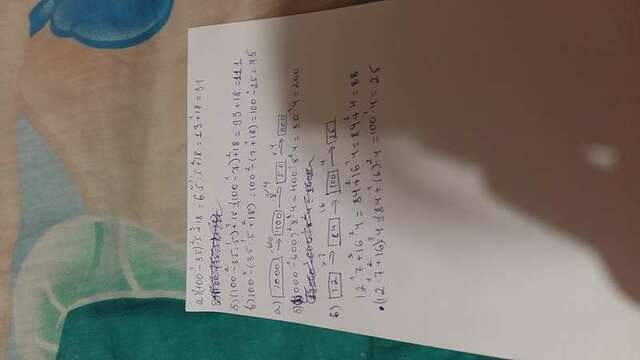 а) (100 - 35) : 5 + 18 = 65 : 5 + 18 = 13 + 18 = 31
б) (100 - 35 : 5) + 18 = (100 - 7) + 18 = 93 + 18 = 111
в) 100 - (35 : 5 + 18) = 100 - (7 + 18) = 100 - 25 = 75
а) 1000 → 400 → 50 → 200
б) (1000 - 600) : 8 · 4 = 400 : 8 · 4 = 50 · 4 = 200
в) 12 → 84 → 100 → 25
12 · 7 + 16 : 4 = 84 + 16 : 4 = 84 + 4 = 88
(12 · 7 + 16) : 4 = (84 + 16) : 4 = 100 : 4 = 25